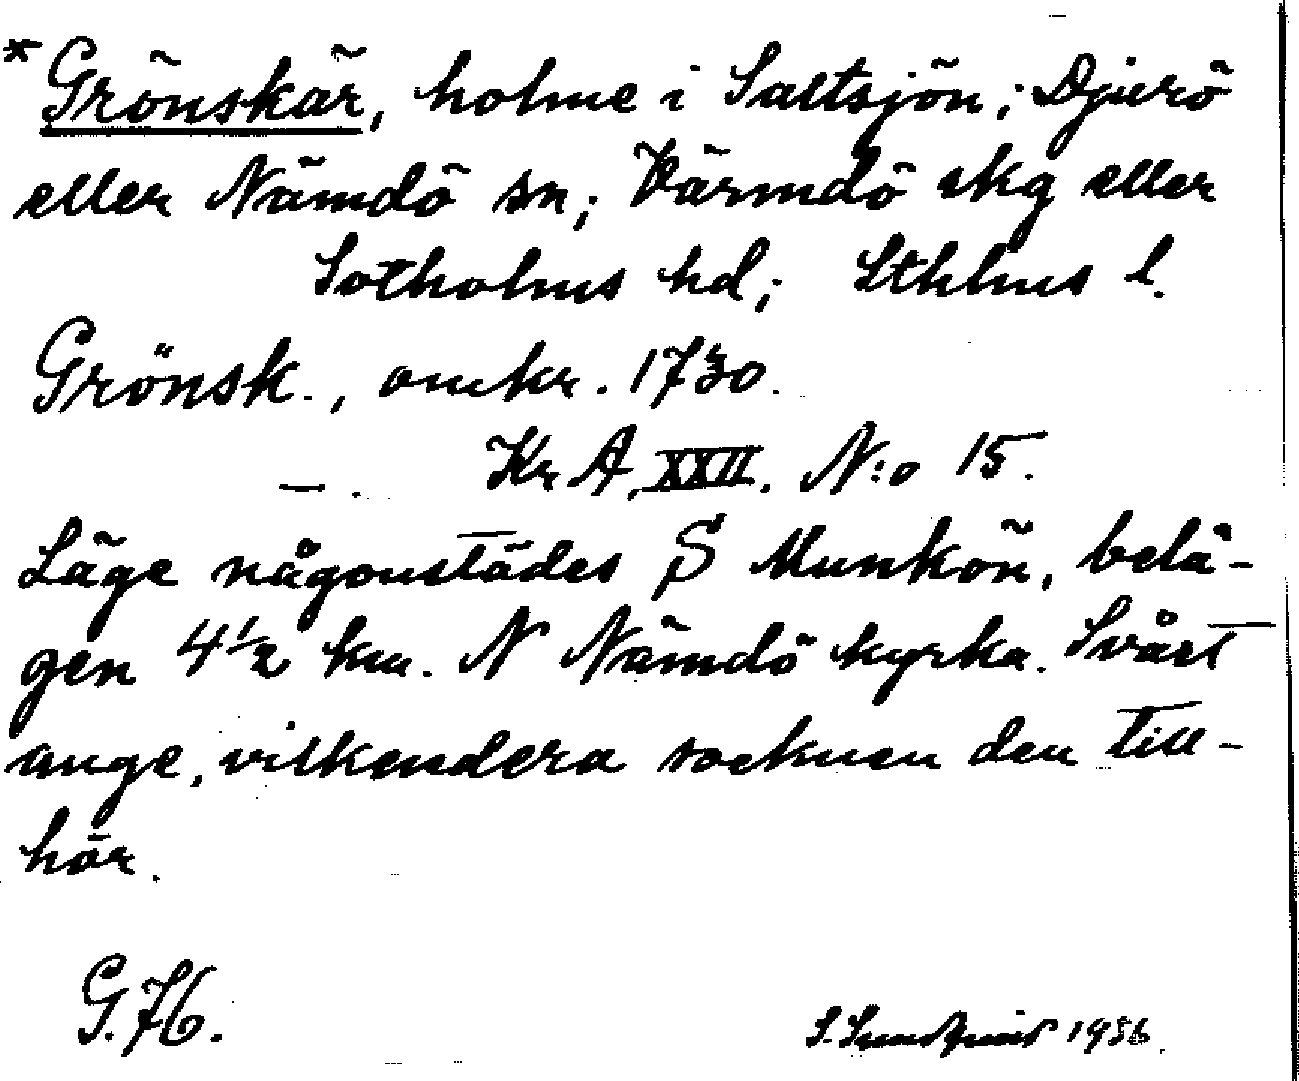 *Grönskär, holme i Saltsjön; Djurö
eller Nämdö sn; Värmdö skg eller
Sotholms hd; Sthlms l.
Grönsk., omkr. 1730.
Kr A, XXII. N:o 15.
Läge någonstädes S Munkön, belä-
gen 4½ km. N Nämdö kyrka. Svårt
ange, vilkendera socknen den till-
hör.
G.H.
S. Sundqvist 1956.